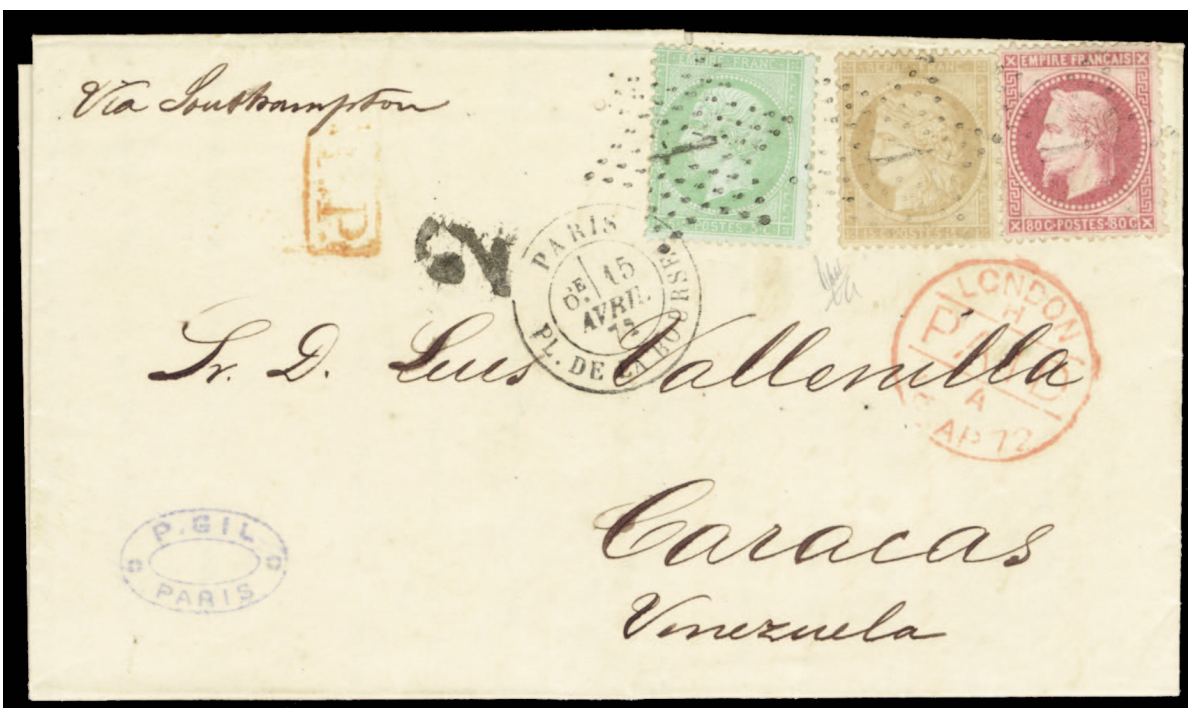 Via Southampton
EMPIRE FRANC
POSTES
REPUB FRANC
15c POSTES
EMPIRE FRANÇAIS
80C·POSTES·80C
1
1
P.P.
2
PARIS
6E 15
AVRIL
72
PL. DE LA BOURSE
LONDON
H
PAID
A
AP 72
Sr. D. Luis Vallenilla
Caracas
Venezuela
P. GIL
PARIS